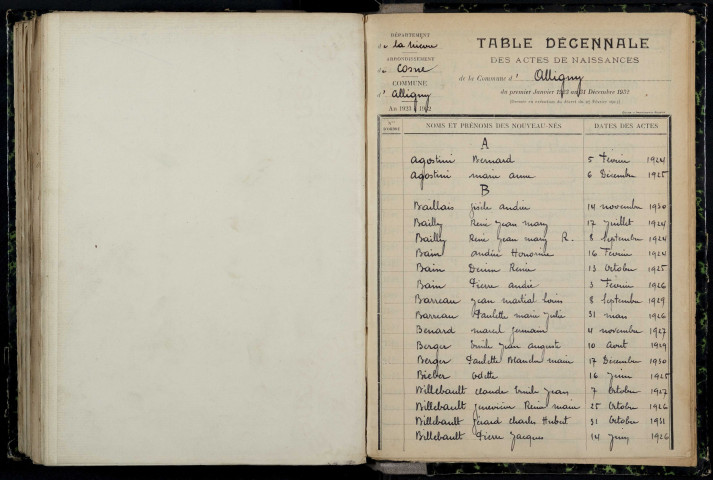 DÉPARTEMENT
de la Nièvre
ARRONDISSEMENT
de Cosne
COMMUNE
d' Alligny
An 1923 1932
TABLE DÉCENNALE
DES ACTES DE NAISSANCES
de la Commune d' Alligny
du premier Janvier 1923 au 31 Décembre 1932
NOMS ET PRÉNOMS DES NOUVEAU-NÉS
DATES DES ACTES
A
Agostini Bernard 5 Février 1924
Agostini marie anne 6 Décembre 1925
B
Baillais gisèle andrée 14 novembre 1930
Bailly René Jean mary 17 Juillet 1924
Bailly René Jean mary R. 8 Septembre 1924
Bain andrée Honorine 16 Février 1924
Bain Renée 13 Octobre 1925
Bain Pierre andré 3 Février 1926
Barreau Jean martial Louis 8 Septembre 1929
Barreau Paulette marie Julie 31 mars 1926
Benard marcel germain 11 novembre 1927
Berger Emile Jean auguste 10 Aout 1929
Berger Paulette Blanche marie 17 Décembre 1930
Bieber Odette 16 Juin 1925
Billebault claude Emile Jean 7 Octobre 1927
Billebault geneviève Renée marie 25 Octobre 1926
Billebault gérard charles Hubert 31 Octobre 1931
Billebault Pierre Jacques 14 Juin 1926